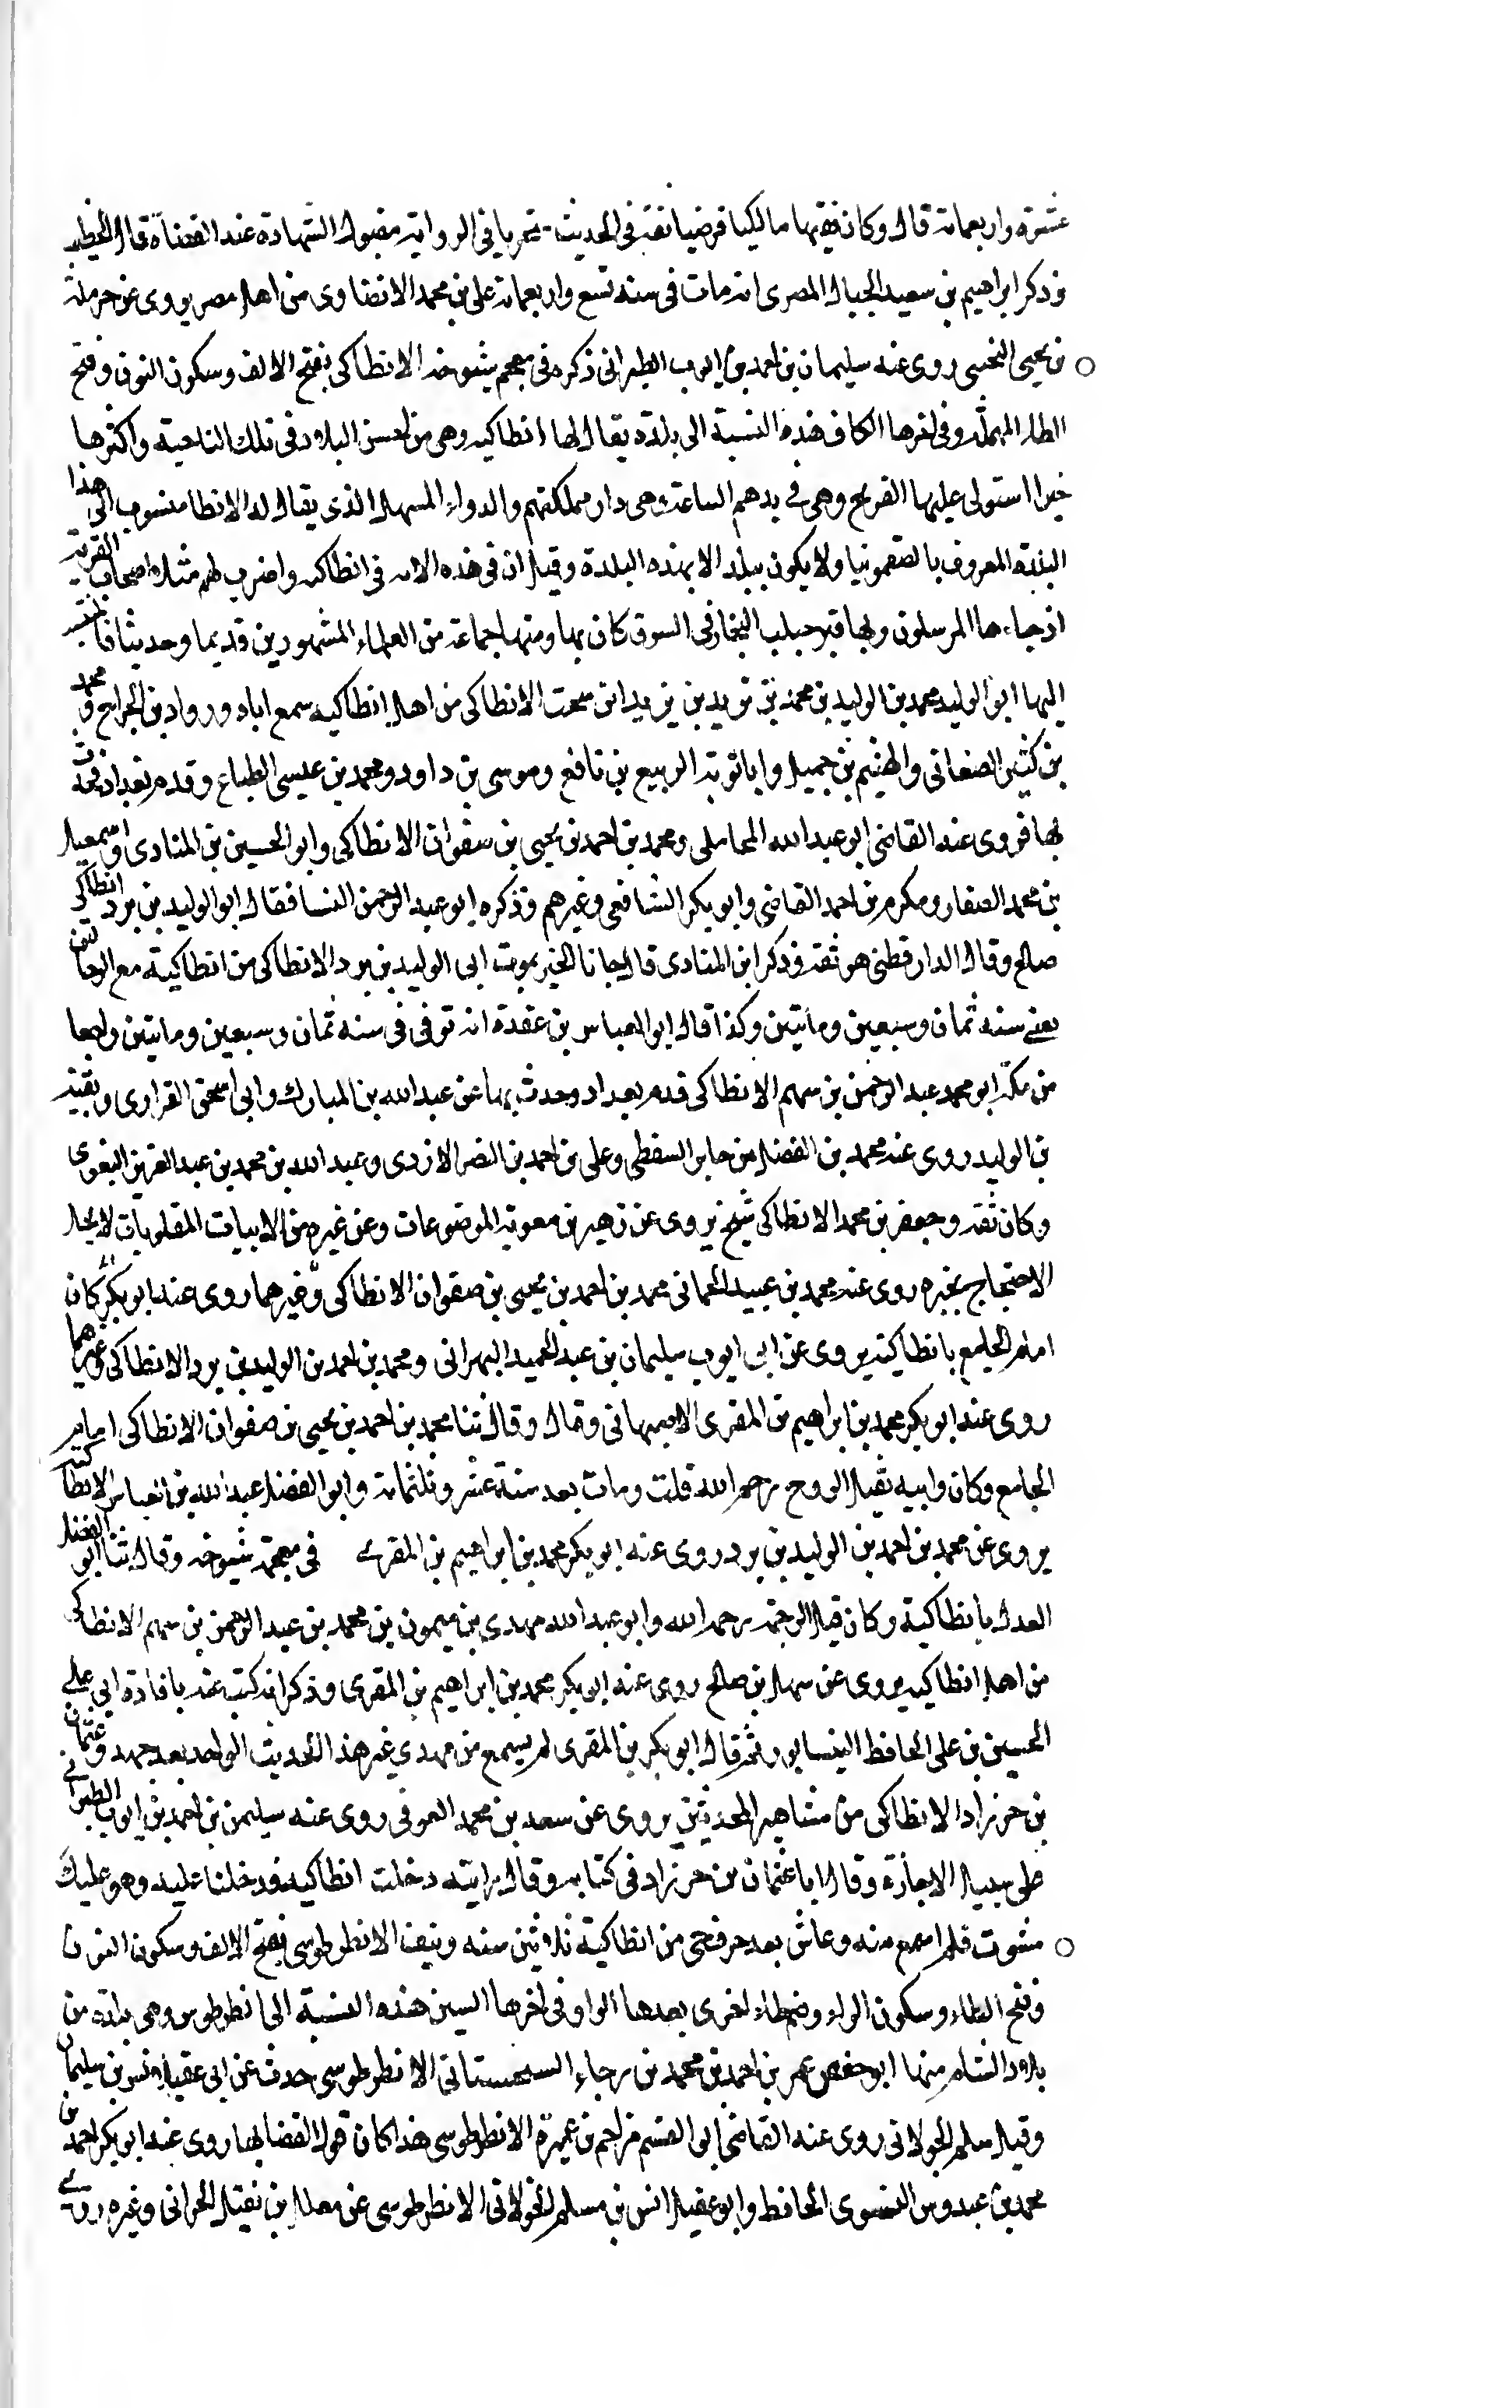 عشرة واربعماية قال وكان فقيها مالكيا فرضيا ثقة فى الحديث متحريا فى الرواية مقبول الشهادة عند القضاة قال الخطيب
وذكر ابراهيم بن سعيد الحبال المصرى انه مات فى سنه تسع واربعماية على بن محمد الانضاوى من اهل مصر يروى عن حرملة
بن يحيى التجيبى روى عنه سليمان بن احمد بن ايوب الطبرانى ذكره فى معجم شيوخه الانطاكى بفتح الالف وسكون النون وفتح
الطاء المهملة وفى اخرها الكاف هذه النسبة الى بلدة يقال لها انطاكيه وهى من احسن البلاد فى تلك الناحية واكثرها
خيرا استولى عليها الفرنج وهى فى يدهم الساعة وهى دار مملكتهم والدواء المسهل الذى يقال له الانطا منسوب الى هذا
البلدة المعروف بالسقمونيا ولا يكون ببلد الا بهذه البلدة وقيل ان فى هذه الايه فى انطاكيه واضرب لهم مثلا اصحاب القرية
اذ جاءها المرسلون وبها قبر حبيب النجار فى السوق كان بها ومنها جماعة من العلماء المشهورين قديما وحديثا فالمنتسب
اليها ابو الوليد محمد بن الوليد بن محمد بن بريد بن يزيد ابن سحت الانطاكى من اهل انطاكيه سمع اباه ورواد بن الجراح ومحمد
بن كثير الصنعانى والهيثم بن جميل وابا توبة الربيع بن نافع وموسى بن داود ومحمد بن عيسى الطباع وقدم بغداد فحدث
بها فروى عنه القاضى ابو عبد الله المحاملى ومحمد بن احمد بن يحيى بن صفوان الانطاكى وابو الحسين بن المنادى واسمعيل
بن محمد الصفار ومكرم بن احمد القاضى وابو بكر الشافعى وغيرهم وذكره ابو عبد الرحمن النسا فقال ابو الوليد بن برد انطاكى
صالح وقال الدارقطنى هو ثقة وذكر ابن المنادى قال جانا الخبر بموت ابى الوليد بن برد الانطاكى من انطاكية مع الرجا لتين
يعنى سنه ثمان وسبعين وماتين وكذا قال ابو العباس بن عقدة انه توفى فى سنه ثمان وسبعين وماتين راجعا
من مكة ابو محمد عبد الرحمن بن سهم الانطاكى قدم بغداد وحدث بها عن عبد الله بن المبارك وابى اسحق الفزارى وبقية
بن الوليد روى عنه محمد بن الفضل من جابر السقطى وعلى بن احمد بن النضر الازدى وعبد الله بن محمد بن عبد العزيز البغوى
وكان ثقة وجعفر بن محمد الانطاكى شيخ يروى عن زهير بن معوية الموضوعات وعن غيره من الاثبات المقلوبات لا يحل
الاحتجاج بخبره روى عنه محمد بن عبيد الحمانى محمد بن احمد بن يحيى بن صفوان الانطاكى وغيرهما روى عنه ابو بكر كان
امام الجامع بانطاكية يروى عن ابى ايوب سليمان بن عبد الحميد البهرانى ومحمد بن احمد بن الوليد بن برد الانطاكى وغيرهما
روى عنه ابو بكر محمد بن ابراهيم بن المقرى الاصبهانى وقال وقال ثنا محمد بن احمد بن يحيى بن صفوان الانطاكى امام
الجامع وكان وابيه ثقيل الروح رحمه الله قلت ومات بعد سنة عشر وثلثماية وابو الفضل عبد الله بن العباس الانطاكى
يروى عن محمد بن احمد بن الوليد بن برد روى عنه ابو بكر محمد بن ابراهيم بن المقرى فى معجمة شيوخه وقال ثنا ابو الفضل
العدل بانطاكية وكان قيل الوجه رحمه الله وابو عبد الله مهدى بن ميمون بن محمد بن عبد الرحمن بن سهم الانطاكى
من اهل انطاكيه يروى عن سهل بن صالح روى عنه ابو بكر محمد بن ابراهيم بن المقرى وذكر انه كتب عنه بافادة ابى على
الحسين بن على الحافظ النيسابورى ثم قال ابو بكر بن المقرى لم يسمع من مهدى غير هذا الحديث الواحد بعد جهد وعثمان
بن خرزاد الانطاكى من مشاهير المحدثين يروى عن سعد بن محمد العوفى روى عنه سليمن بن احمد بن ايوب الطبرانى
على سبيل الاجازة وقال ابا عثمان بن خرزاد فى كتابه وقال رايته دخلت انطاكيه فدخلنا عليه وهو عليل
مسبوت فلم اسمع منه وعاش بعد خرفتى من انطاكية ثلاثين سنه ونيف الانطرطوسى بفتح الالف وسكون النون
وفتح الطاء وسكون الراء وضم طاء اخرى بعدها الواو فى اخرها السين هذه النسبة الى انطرطوس وهى بلدة من
بلاد الشام منها ابو حفص عمر بن احمد بن محمد بن رجاء السجستانى الانطرطوسى حدث عن ابى عقيل انس بن سليمان
وقيل سلم الخولانى روى عنه القاضى ابى القسم مزاحم بن عميرة الانطرطوسى هذا كان قول القضا بها روى عنه ابو بكر احمد بن
محمد بن عبدوس النسوى الحافظ وابو عقيل انس بن مسلم الخولانى الانطرطوسى عن معلل بن نفيل الحرانى وغيره روى